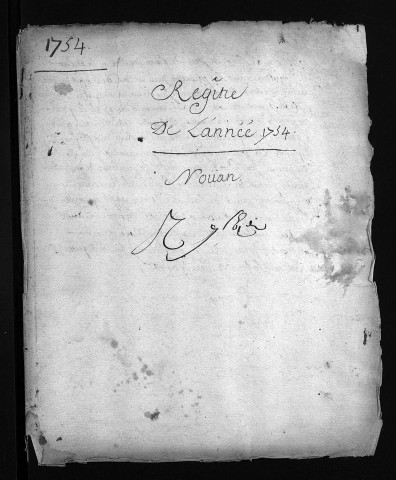 1754.
Regitre
De L'année 1754
Nouan